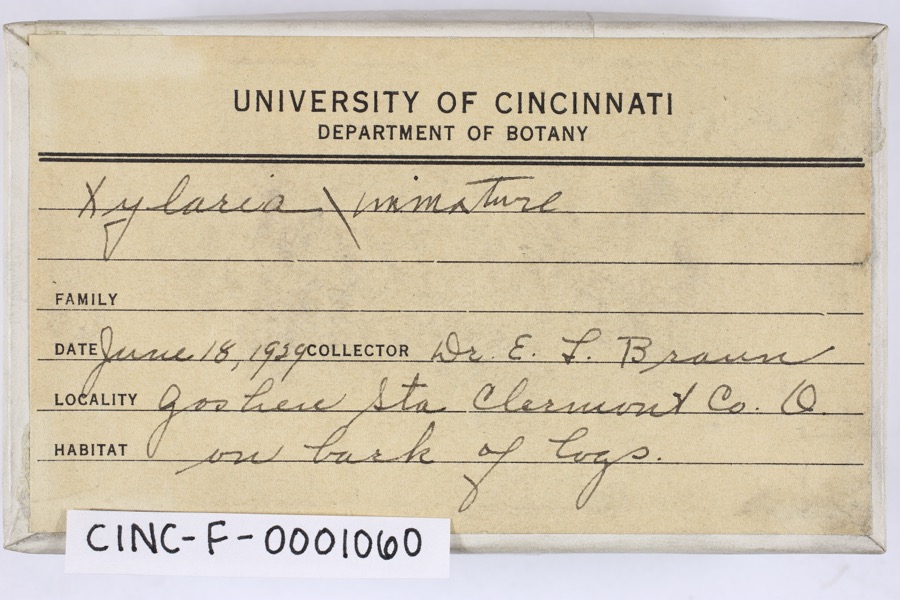 UNIVERSITY OF CINCINNATI
DEPARTMENT OF BOTANY
Xylaria \ immature
FAMILY
DATE June 18, 1929 COLLECTOR Dr. E. L. Braun
LOCALITY Goshen Sta Clermont Co. O.
HABITAT on bark of logs.
CINC-F-0001060